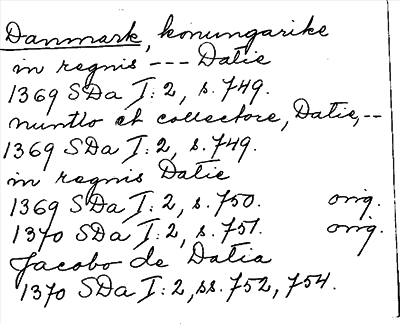 Danmark, konungarike
in regnis --- Datie
1369 SDa I:2, s. 749.
nuntio et collectore, Datie, --
1369 SDa I:2, s. 749.
in regnis Datie
1369 SDa I:2, s. 750. orig.
1370 SDa I:2, s. 751. orig.
Jacobo de Datia
1370 SDa I:2, ss. 752, 754.